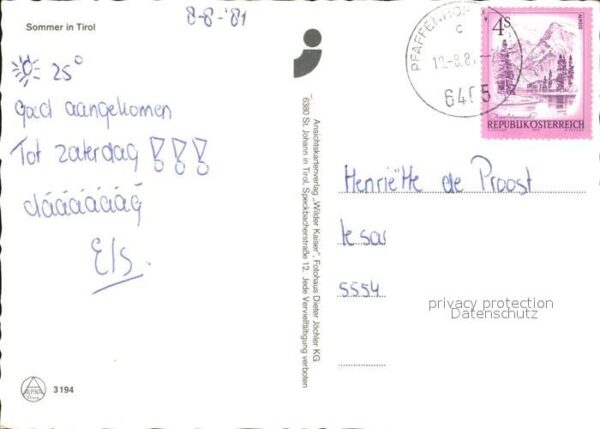 Sommer in Tirol
8-8-'81
25°
goed aangekomen
Tot zaterdag !!!
dááááááág
Els.
3194
Ansichtskartenverlag „Wilder Kaiser", Fotohaus Dieter Jöchler KG
6380 St. Johann in Tirol, Speckbacherstraße 12. Jede Vervielfältigung verboten
PFAFFENHOF
c
12.-8.8
6405
4S
ALMSEE
REPUBLIK ÖSTERREICH
Henriëtte de Proost
5554
privacy protection
Datenschutz